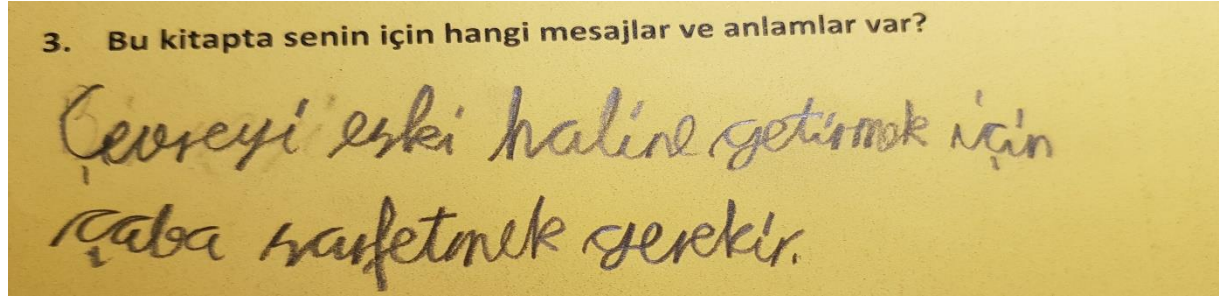 3. Bu kitapta senin için hangi mesajlar ve anlamlar var?
Çevreyi eski haline getirmek için
çaba sarfetmek gerekir.